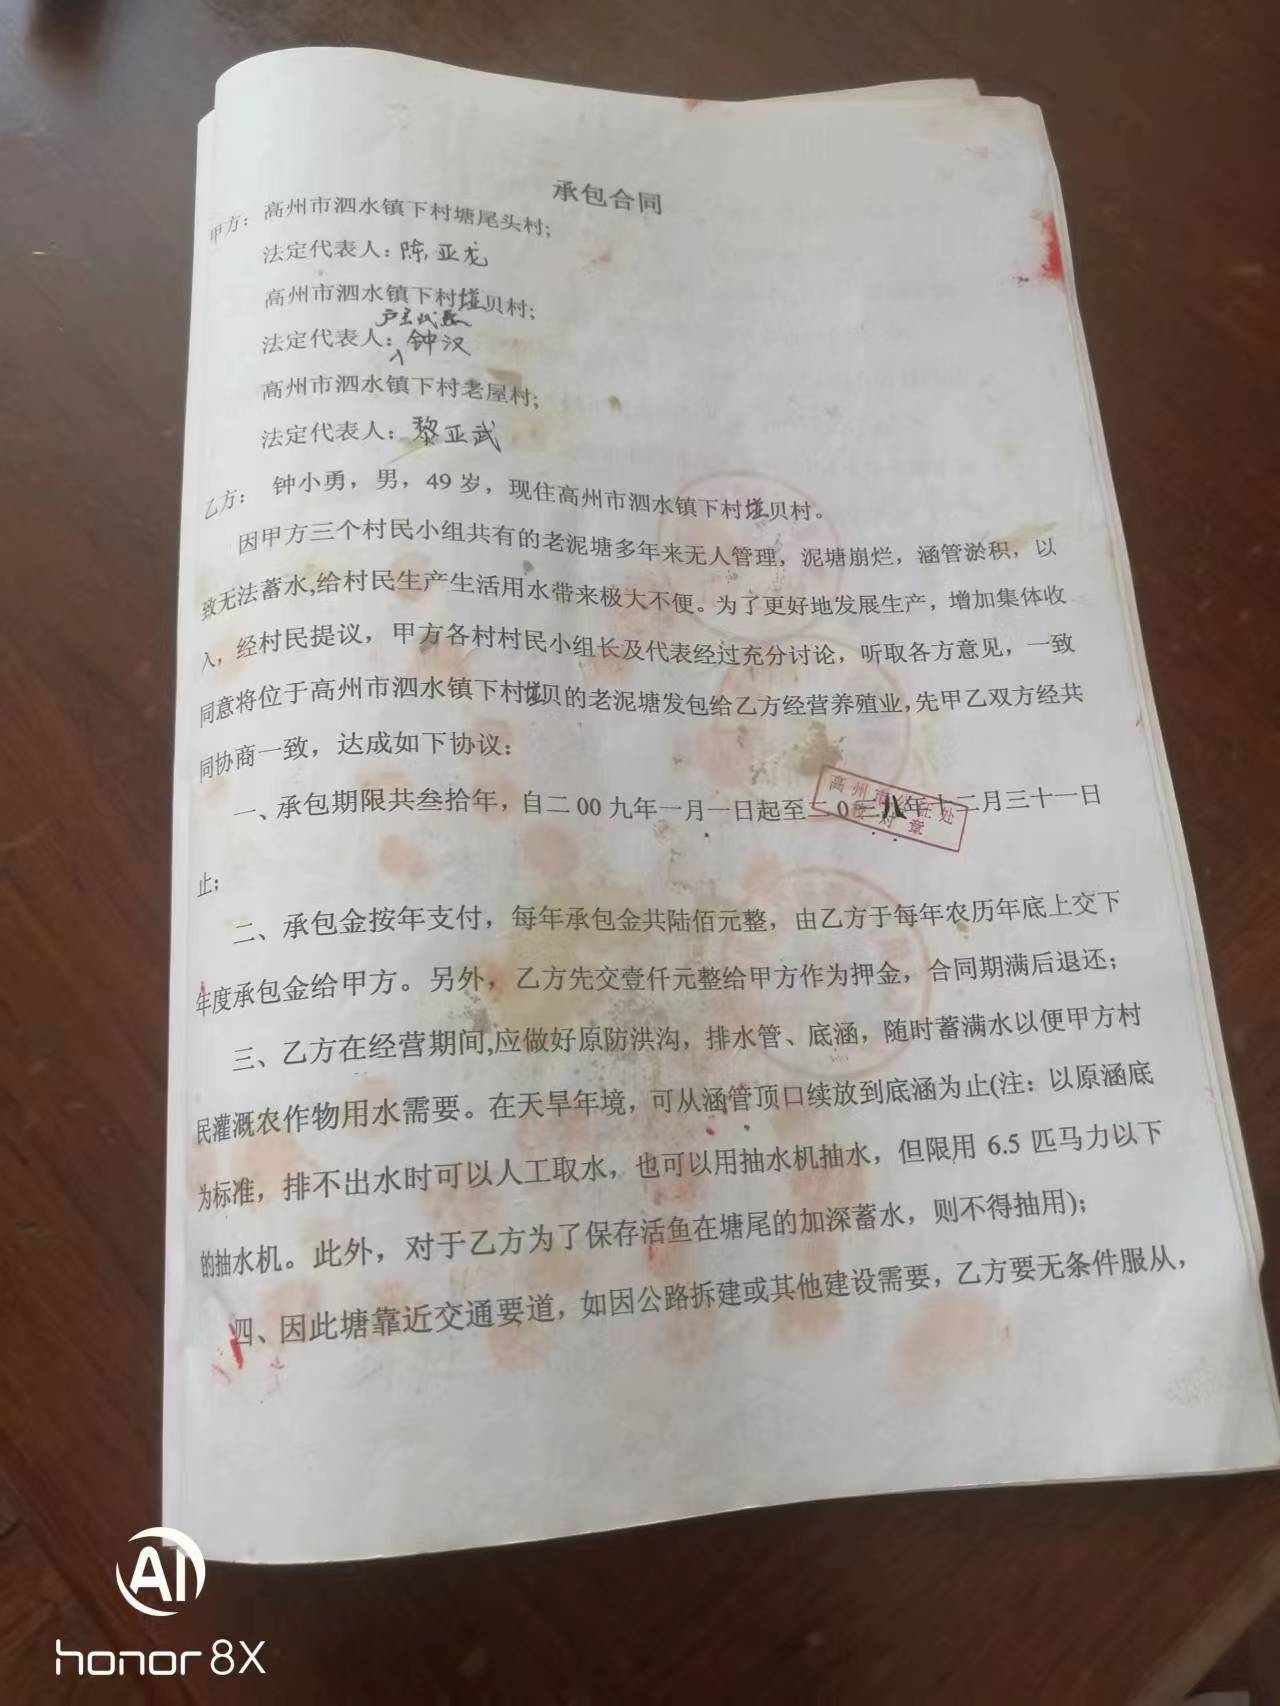 承包合同
甲方：高州市泗水镇下村塘尾头村；
法定代表人：陈亚龙
高州市泗水镇下村塸贝村；
户主代表
法定代表人：钟汉
高州市泗水镇下村老屋村；
法定代表人：黎亚武
乙方： 钟小勇，男，49岁，现住高州市泗水镇下村塸贝村。
因甲方三个村民小组共有的老泥塘多年来无人管理，泥塘崩烂，涵管淤积，以
致无法蓄水,给村民生产生活用水带来极大不便。为了更好地发展生产，增加集体收
入，经村民提议，甲方各村村民小组长及代表经过充分讨论，听取各方意见，一致
同意将位于高州市泗水镇下村塸贝的老泥塘发包给乙方经营养殖业,先甲乙双方经共
同协商一致，达成如下协议：
一、承包期限共叁拾年，自二00九年一月一日起至二0三八年十二月三十一日
高州市 证处
校对章
止；
二、承包金按年支付，每年承包金共陆佰元整，由乙方于每年农历年底上交下
年度承包金给甲方。另外，乙方先交壹仟元整给甲方作为押金，合同期满后退还；
三、乙方在经营期间,应做好原防洪沟，排水管、底涵，随时蓄满水以便甲方村
民灌溉农作物用水需要。在天旱年境，可从涵管顶口续放到底涵为止(注：以原涵底
为标准，排不出水时可以人工取水，也可以用抽水机抽水，但限用 6.5 匹马力以下
的抽水机。此外，对于乙方为了保存活鱼在塘尾的加深蓄水，则不得抽用)；
四、因此塘靠近交通要道，如因公路拆建或其他建设需要，乙方要无条件服从，
AI
honor 8X